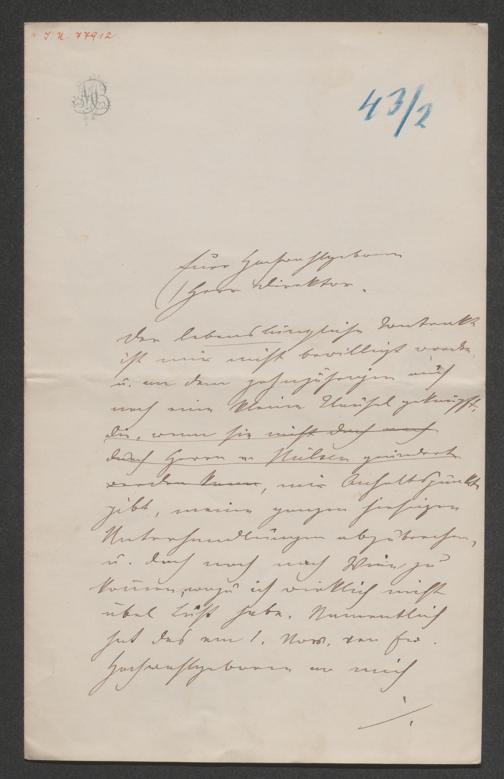 J. N. 77912
43/2
Euer Hochwohlgeboren
Herr Direktor.
Der lebenslängliche Contrakt
ist mir nicht bewilligt worden
u. an dem zehnjährigen auch
noch eine kleine Clausel geknüpft,
die, wenn sie nicht doch noch
durch Herrn v Hülsen geändert
werden kann, mir Anhaltspunkte
gibt, meine ganzen hiesigen
Unterhandlungen abzubrechen,
u. doch noch nach Wien zu
kommen, wozu ich wirklich nicht
übel Lust habe. Namentlich
hat das am 1. Nov. von Ew.
Hochwohlgeboren an mich